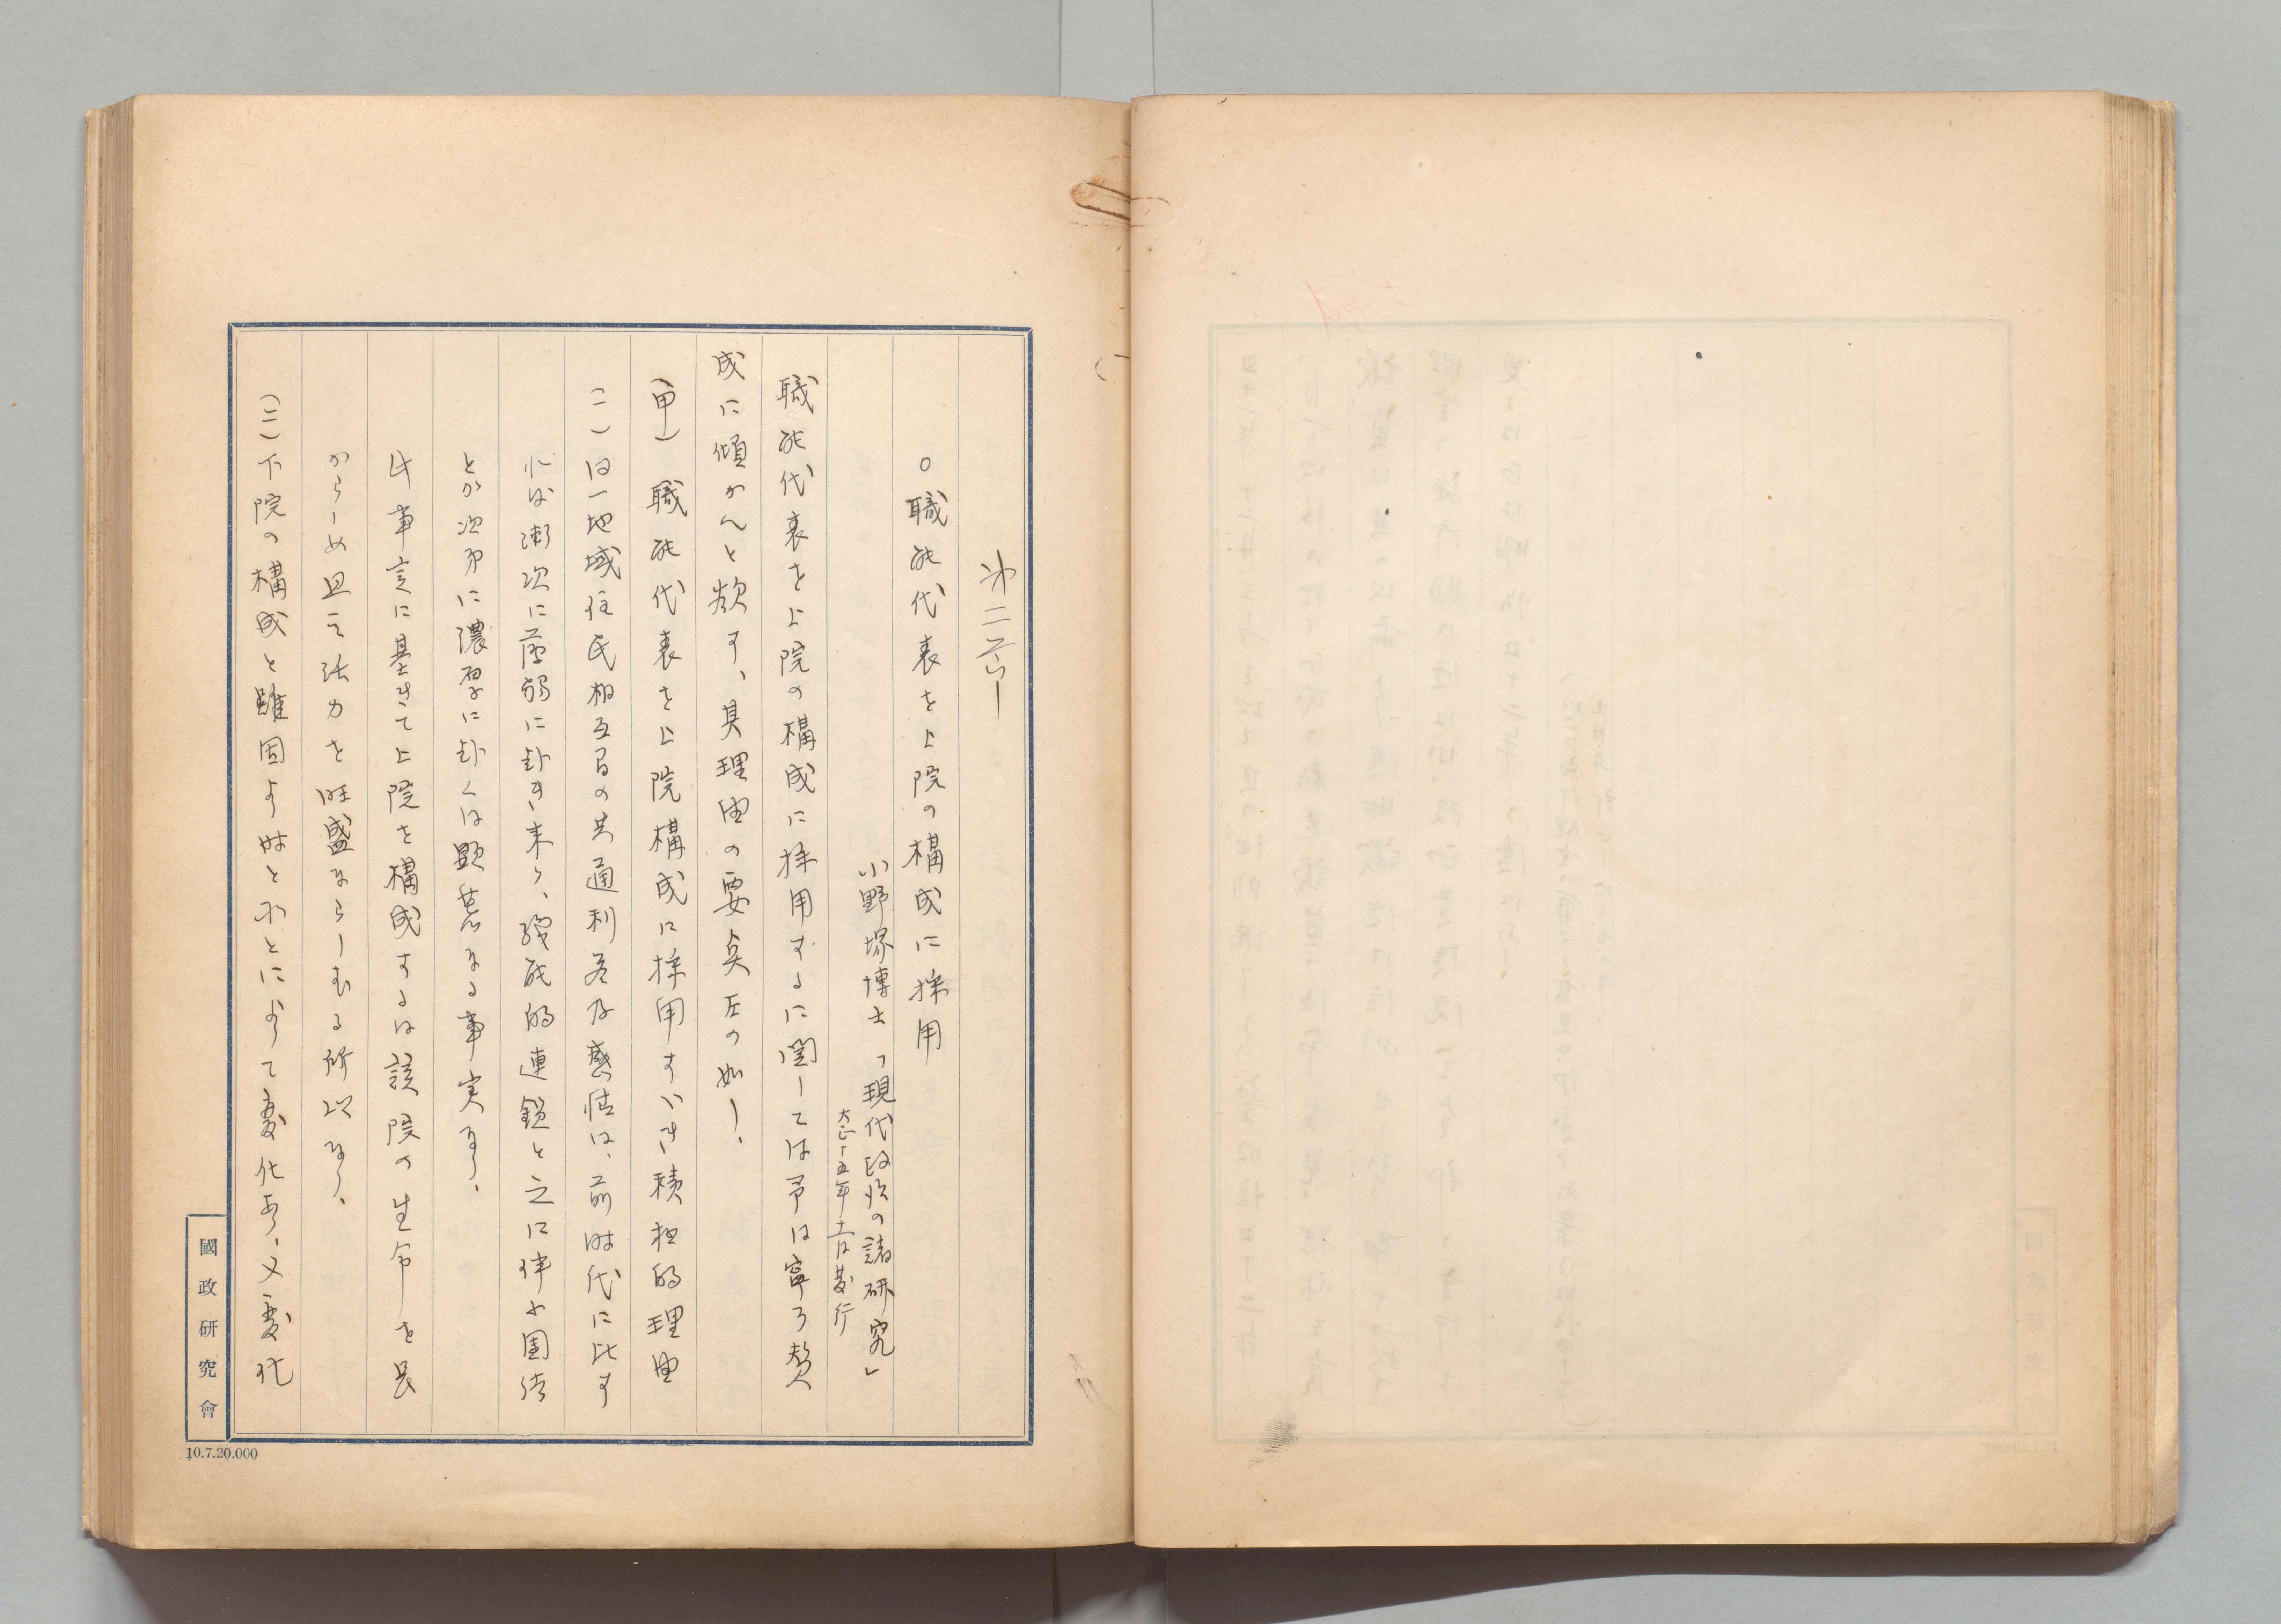 第二芯
○職能代表を上院の構成に採用
小野塚博士「現代政治の諸研究」
大正十五年十一月発行
職能代表を上院の構成に採用するに関しては予は寧ろ賛
成に傾かんと欲す、其理由の要点左の如し、
(甲) 職能代表を上院構成に採用すべき積極的理由
(一)は一地域住民相互間の共通利益及感情は、前時代に比す
れば漸次に薄弱に赴き来り、職能的連鎖と之に伴ふ團結
とが次第に濃厚に赴くは顕著なる事実なり、
此事実に基きて上院を構成するは該院の生命を長
からしめ且之活力を旺盛ならしむる所以なり、
(二)下院の構成と雖固より時と所とによりて変化あり、又変化
國政研究會
10.7.20.000